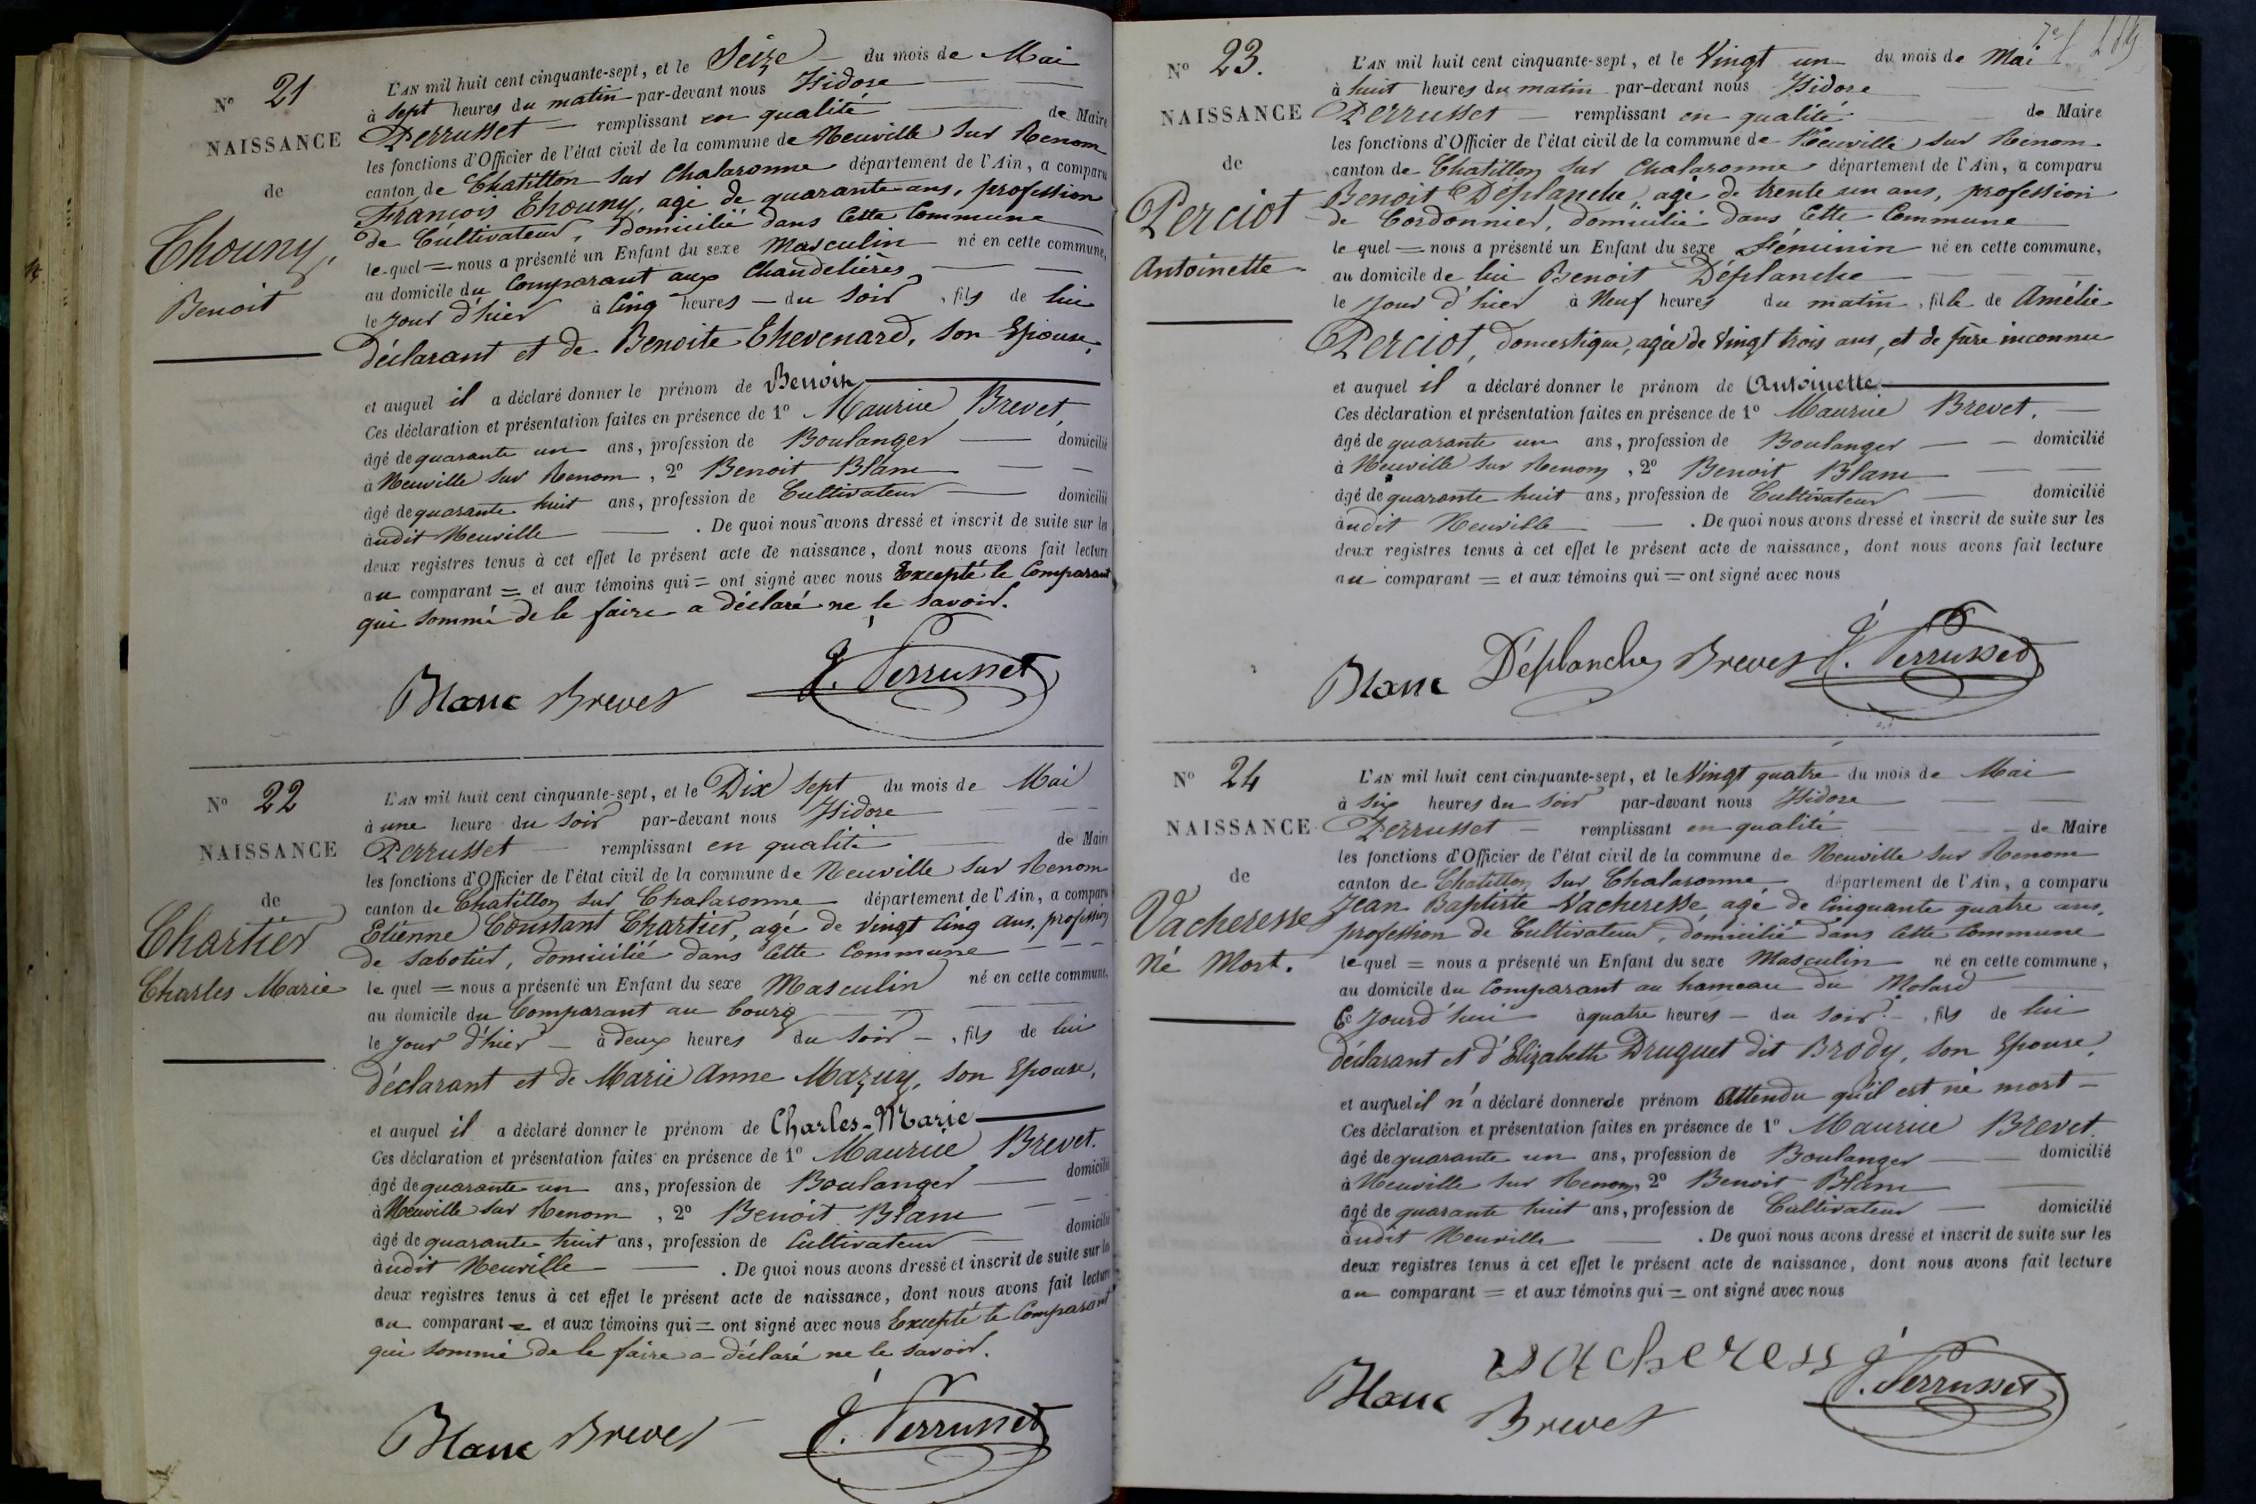 N° 21
NAISSANCE
de
Chouny,
Benoit
L'AN mil huit cent cinquante-sept, et le Seize du mois de Mai
à sept heures du matin par-devant nous Isidore
Perrusset remplissant en qualité de Maire
les fonctions d'Officier de l'état civil de la commune de Neuville sur Renom
canton de Chatillon sur Chalaronne département de l'Ain, a comparu
François Chouny, agé de quarante ans, profession
de Cultivateur, domicilié dans cette Commune
le quel = nous a présenté un Enfant du sexe Masculin né en cette commune,
au domicile du Comparant aux Chandelières
le jour d'hier à Cinq heures du soir, fils de lui
déclarant et de Benoite Chevenard, son Epouse,
et auquel il a déclaré donner le prénom de Benoit
Ces déclaration et présentation faites en présence de 1° Maurice Brevet,
âgé de quarante un ans, profession de Boulanger domicilié
à Neuville sur Renom, 2° Benoit Blanc
âgé de quarante huit ans, profession de Cultivateur domicilié
audit Neuville. De quoi nous avons dressé et inscrit de suite sur les
deux registres tenus à cet effet le présent acte de naissance, dont nous avons fait lecture
au comparant = et aux témoins qui = ont signé avec nous Excepté le Comparant
qui sommé de le faire a déclaré ne le savoir.
Blanc Brevet I. Perrusset
N° 22
NAISSANCE
de
Chartier
Charles Marie
L'AN mil huit cent cinquante-sept, et le Dix sept du mois de Mai
à une heure du soir par-devant nous Isidore
Perrusset remplissant en qualité de Maire
les fonctions d'Officier de l'état civil de la commune de Neuville sur Renom
canton de Chatillon sur Chalaronne département de l'Ain, a comparu
Etienne Constant Chartier, agé de vingt cinq ans, profession
de sabotier, domicilié dans cette Commune
le quel = nous a présenté un Enfant du sexe Masculin né en cette commune,
au domicile du Comparant au bourg
le jour d'hier à deux heures du soir, fils de lui
déclarant et de Marie Anne Mazuy, son Epouse,
et auquel il a déclaré donner le prénom de Charles-Marie
Ces déclaration et présentation faites en présence de 1° Maurice Brevet.
âgé de quarante un ans, profession de Boulanger domicilié
à Neuville sur Renom, 2° Benoit Blanc
âgé de quarante huit ans, profession de Cultivateur domicilié
audit Neuville. De quoi nous avons dressé et inscrit de suite sur les
deux registres tenus à cet effet le présent acte de naissance, dont nous avons fait lecture
au comparant = et aux témoins qui = ont signé avec nous Excepté le Comparant
qui sommé de le faire a déclaré ne le savoir.
Blanc Brevet I. Perrusset
N° 23.
NAISSANCE
de
Perciot
Antoinette
L'AN mil huit cent cinquante-sept, et le Vingt un du mois de Mai
à huit heures du matin par-devant nous Isidore
Perrusset remplissant en qualité de Maire
les fonctions d'Officier de l'état civil de la commune de Neuville sur Renom
canton de Chatillon sur Chalaronne département de l'Ain, a comparu
Benoit Déplanche, agé de trente un ans, profession
de Cordonnier, domicilié dans cette Commune
le quel = nous a présenté un Enfant du sexe Féminin né en cette commune,
au domicile de lui Benoit Déplanche
le jour d'hier à Neuf heures du matin, fille de Amélie
Perciot, domestique, agée de Vingt trois ans, et de père inconnu
et auquel il a déclaré donner le prénom de Antoinette
Ces déclaration et présentation faites en présence de 1° Maurice Brevet,
âgé de quarante un ans, profession de Boulanger domicilié
à Neuville sur Renom, 2° Benoit Blanc
âgé de quarante huit ans, profession de Cultivateur domicilié
audit Neuville. De quoi nous avons dressé et inscrit de suite sur les
deux registres tenus à cet effet le présent acte de naissance, dont nous avons fait lecture
au comparant = et aux témoins qui = ont signé avec nous
Blanc Déplanche Brevet I. Perrusset
N° 24
NAISSANCE
de
Vacheresse
Né Mort.
L'AN mil huit cent cinquante-sept, et le Vingt quatre du mois de Mai
à six heures du soir par-devant nous Isidore
Perrusset remplissant en qualité de Maire
les fonctions d'Officier de l'état civil de la commune de Neuville sur Renom
canton de Chatillon sur Chalaronne département de l'Ain, a comparu
Jean Baptiste Vacheresse agé de Cinquante quatre ans,
profession de Cultivateur, domicilié dans cette Commune
le quel = nous a présenté un Enfant du sexe Masculin né en cette commune,
au domicile du Comparant au hameau du Molard
Ce jourd'hui à quatre heures du soir, fils de lui
déclarant et d'Elizabeth Druguet dit Brody, son Epouse,
et auquel il n'a déclaré donner de prénom Attendu qu'il est né mort
Ces déclaration et présentation faites en présence de 1° Maurice Brevet
âgé de quarante un ans, profession de Boulanger domicilié
à Neuville sur Renom, 2° Benoit Blanc
âgé de quarante huit ans, profession de Cultivateur domicilié
audit Neuville. De quoi nous avons dressé et inscrit de suite sur les
deux registres tenus à cet effet le présent acte de naissance, dont nous avons fait lecture
au comparant = et aux témoins qui = ont signé avec nous
vacheresse
Blanc Brevet I. Perrusset